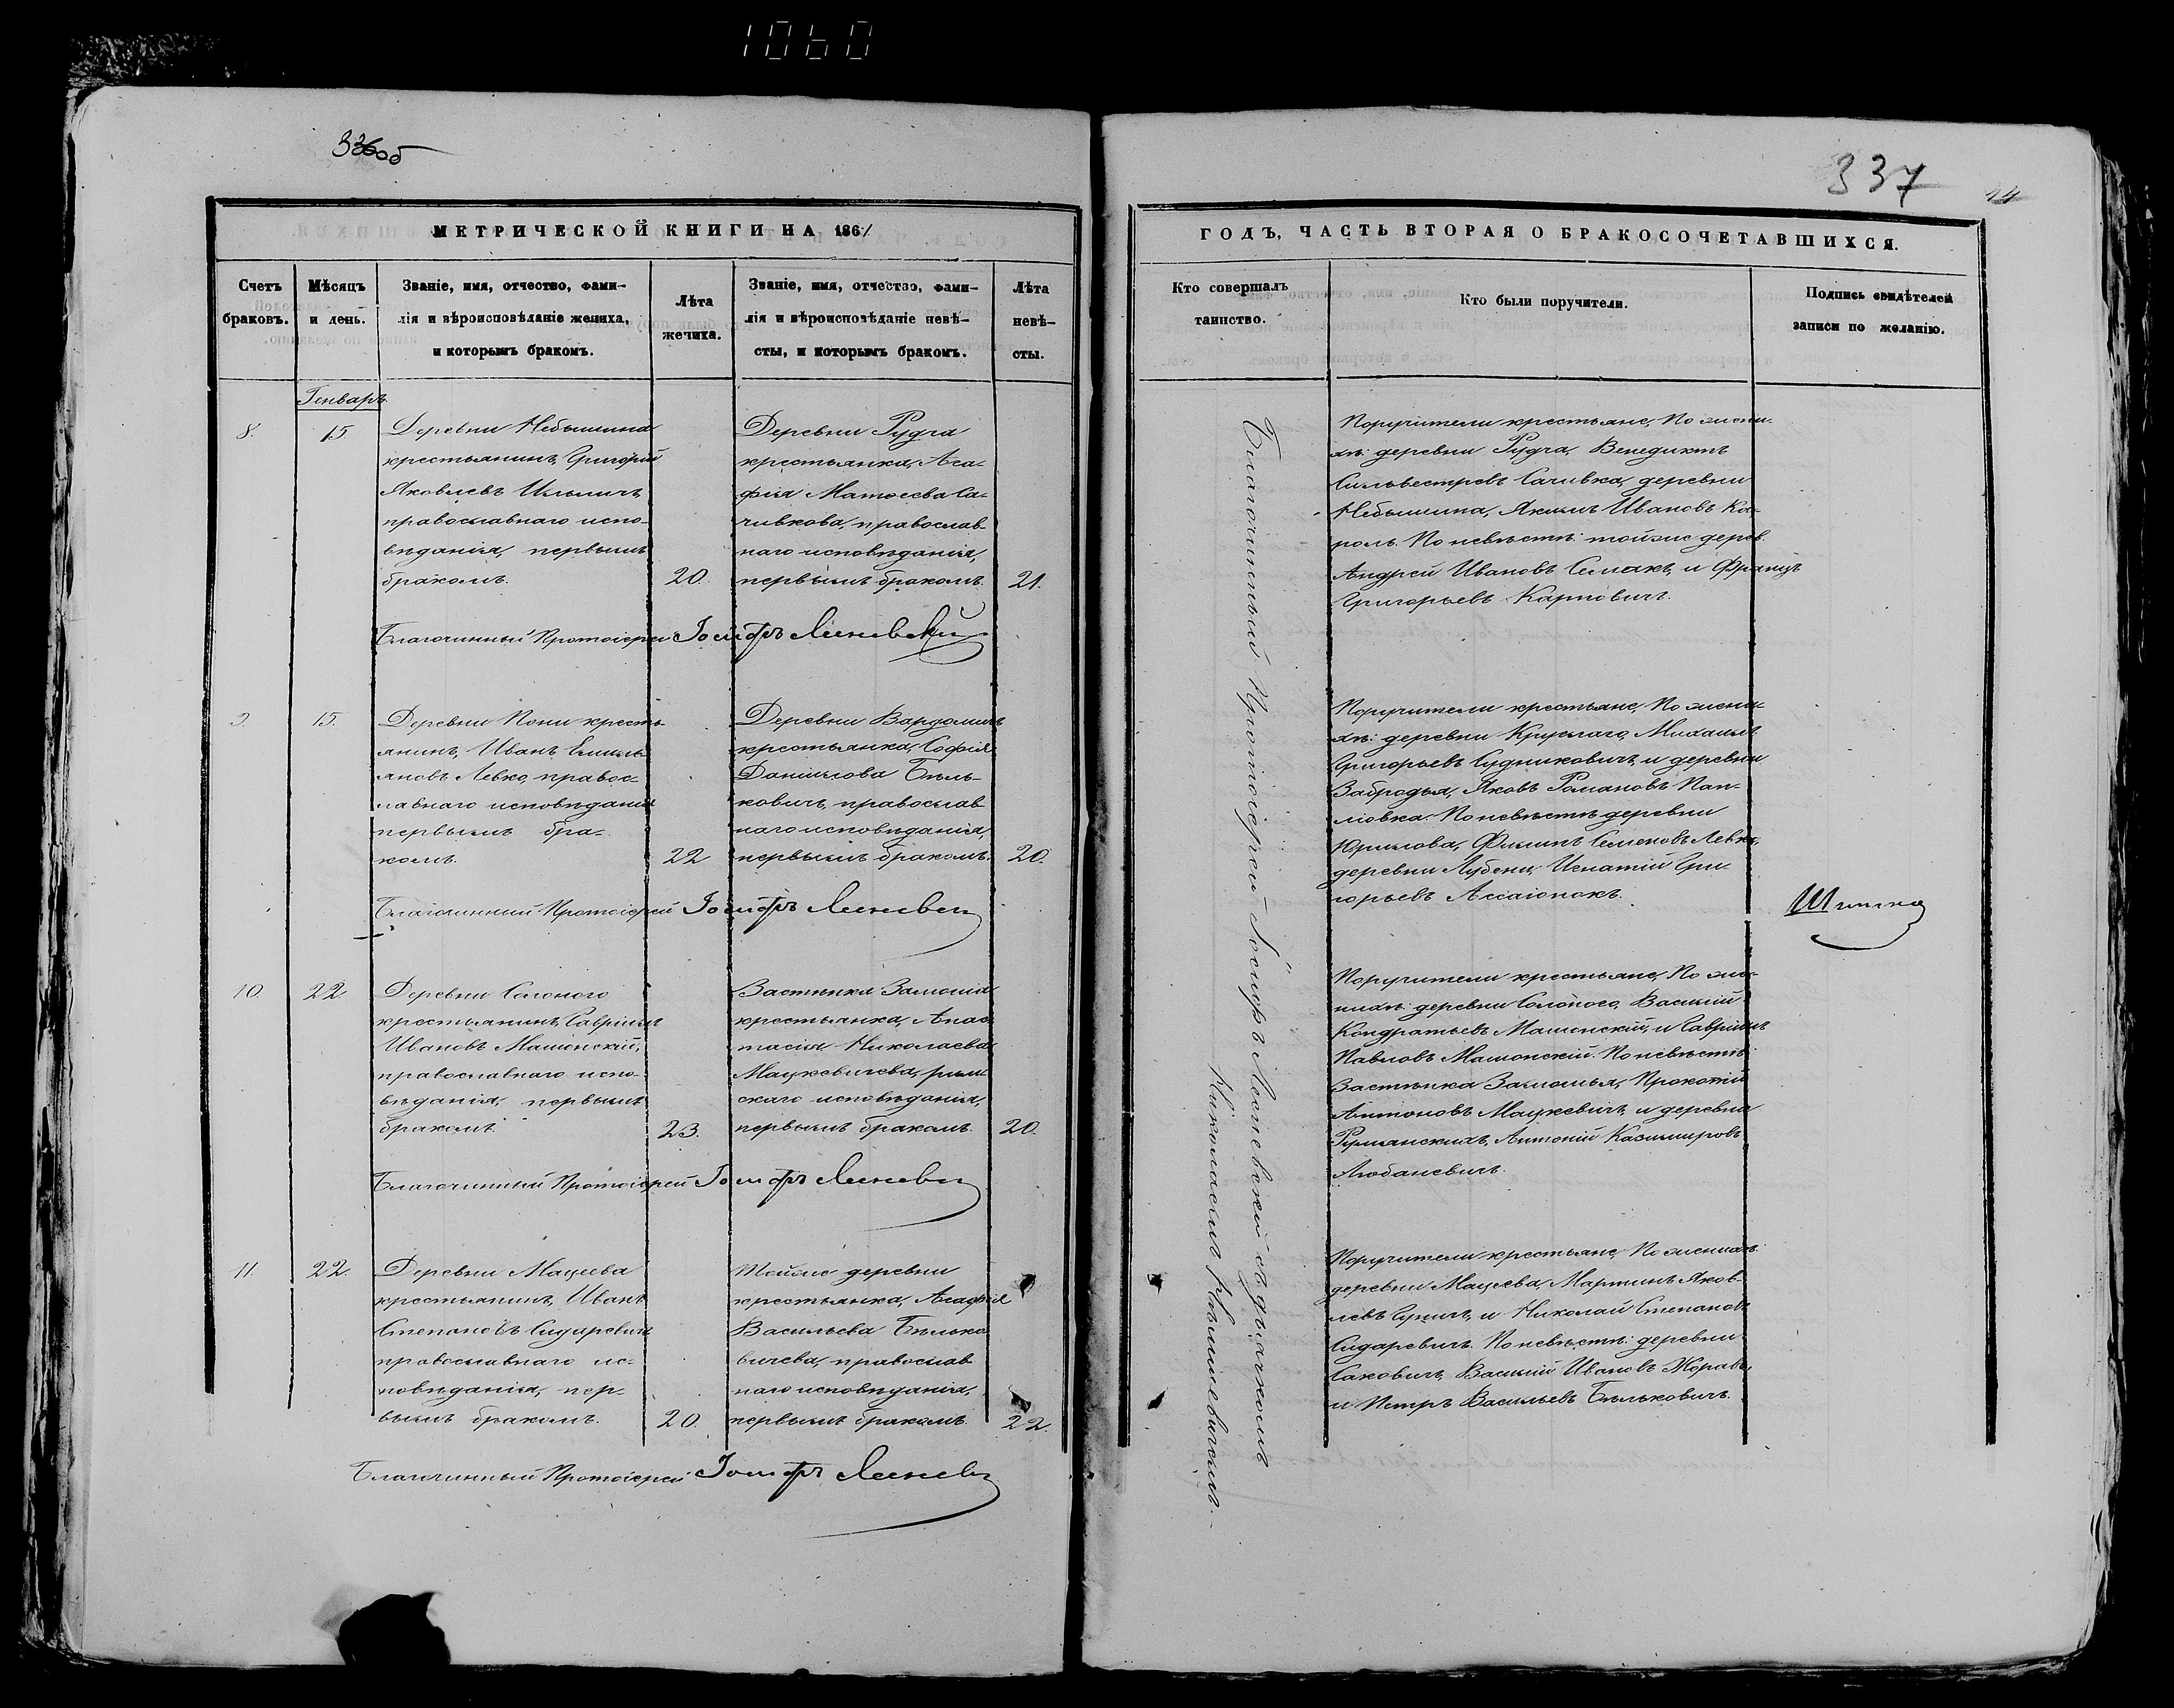 1060
336об
337
14
МЕТРИЧЕСКОЙ КНИГИ НА 1861
Счетъ браковъ.
Мѣсяцъ и день.
Званіе, имя, отчество, фами-
лія и вѣроисповѣданіе жениха,
и которымъ бракомъ.
Лѣта
жениха.
Званіе, имя, отчество, фами-
лія и вѣроисповѣданіе невѣ-
сты, и которымъ бракомъ.
Лѣта
невѣ-
сты.
Генварь
8.
15
Деревни Небышина
крестьянинъ, Григорій
Яковлевъ Ильичъ
православнаго испо-
вѣданія, первымъ
бракомъ.
20.
Деревни Рудга
крестьянка, Ага-
фія Матѳеева Са-
чивкова, православ-
наго исповѣданія,
первымъ бракомъ.
21.
Благочинный Протоіерей Іосифъ
9.
15.
Деревни Пони кресть-
янинъ, Иванъ Емель-
яновъ Левко, правос-
лавнаго исповѣданія
первымъ бра-
комъ.
22
Деревни
крестьянка, Софія
Даніилова Бѣль-
ковичъ, православ
наго исповѣданія,
первымъ бракомъ.
20.
Благочинный Протоіерей Іосифъ
10.
22.
Деревни Солоного
крестьянинъ, Гавріилъ
Ивановъ Машонскій,
православнаго испо-
вѣданія, первымъ
бракомъ.
23.
Застѣнка Замошья
крестьянка, Анас-
тасія Николаева
Мацкевичева, рим
скаго исповѣданія,
первымъ бракомъ.
20.
Благочинный Протоіерей Іосифъ
11.
22.
Деревни Мацеева
крестьянинъ, Иванъ
Степановъ Сидаревичъ
православнаго ис-
повѣданія, пер-
вымъ бракомъ.
20.
Тойже деревни
крестьянка, Агафія
Васильева Бѣлько
вичева, православ
наго исповѣданія,
первымъ бракомъ.
22.
Благочинный Протоіерей Іосифъ
ГОДЪ, ЧАСТЬ ВТОРАЯ О БРАКОСОЧЕТАВШИХСЯ.
Кто совершалъ
таинство.
Кто были поручители.
Подпись свидѣтелей
записи по желанію.
Благочинный Протоіерей Іосифъ съ дьячкомъ
Николаемъ
Поручители крестьяне, По жени-
хѣ: деревни Рудга, Венедиктъ
Сильвестровъ Сачивка, деревни
Небышина, Якимъ Ивановъ Ко-
роль. По невѣстѣ: тойже дерев.
Андрей Ивановъ Семакъ, и Францъ
Григорьевъ Карповичъ.
Поручители крестьяне, По жени-
хѣ: деревни Круглаго, Михаилъ
Григорьевъ Судниковичъ, и деревни
Забродья, Яковъ Романовъ Пап-
ловка. По невѣстѣ деревни
Юрилова, Филипъ Семеновъ Левко,
деревни Лубени, Игнатій Гри-
горьевъ
Поручители крестьяне, По же-
нихѣ: деревни Солоного, Василій
Кондратьевъ Машонскій, и Гавріилъ
Павловъ Машонскій. По невѣстѣ
Застѣнка Замошья, Прокопій
Антоновъ Мацкевичъ, и деревни
Антоній Казимировъ
Любаневичъ.
Поручители крестьяне, По женихѣ:
деревни Мацеева, Мартинъ Яков-
левъ и Николай Степановъ
Сидаревичъ. По невѣстѣ: деревни
Саковичъ, Василій Ивановъ Жоравъ,
и Петръ Васильевъ Бѣльковичъ.